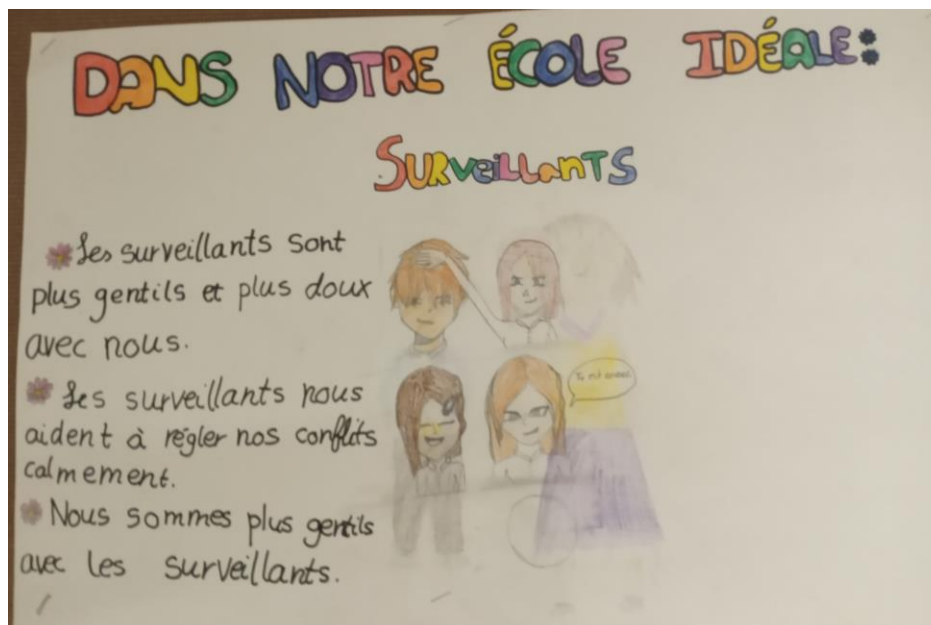 DANS NOTRE ÉCOLE IDÉALE:
SURVEILLANTS
Les surveillants sont
plus gentils et plus doux
avec nous.
Les surveillants nous
aident à régler nos conflits
calmement.
Nous sommes plus gentils
avec les surveillants.
Tu est